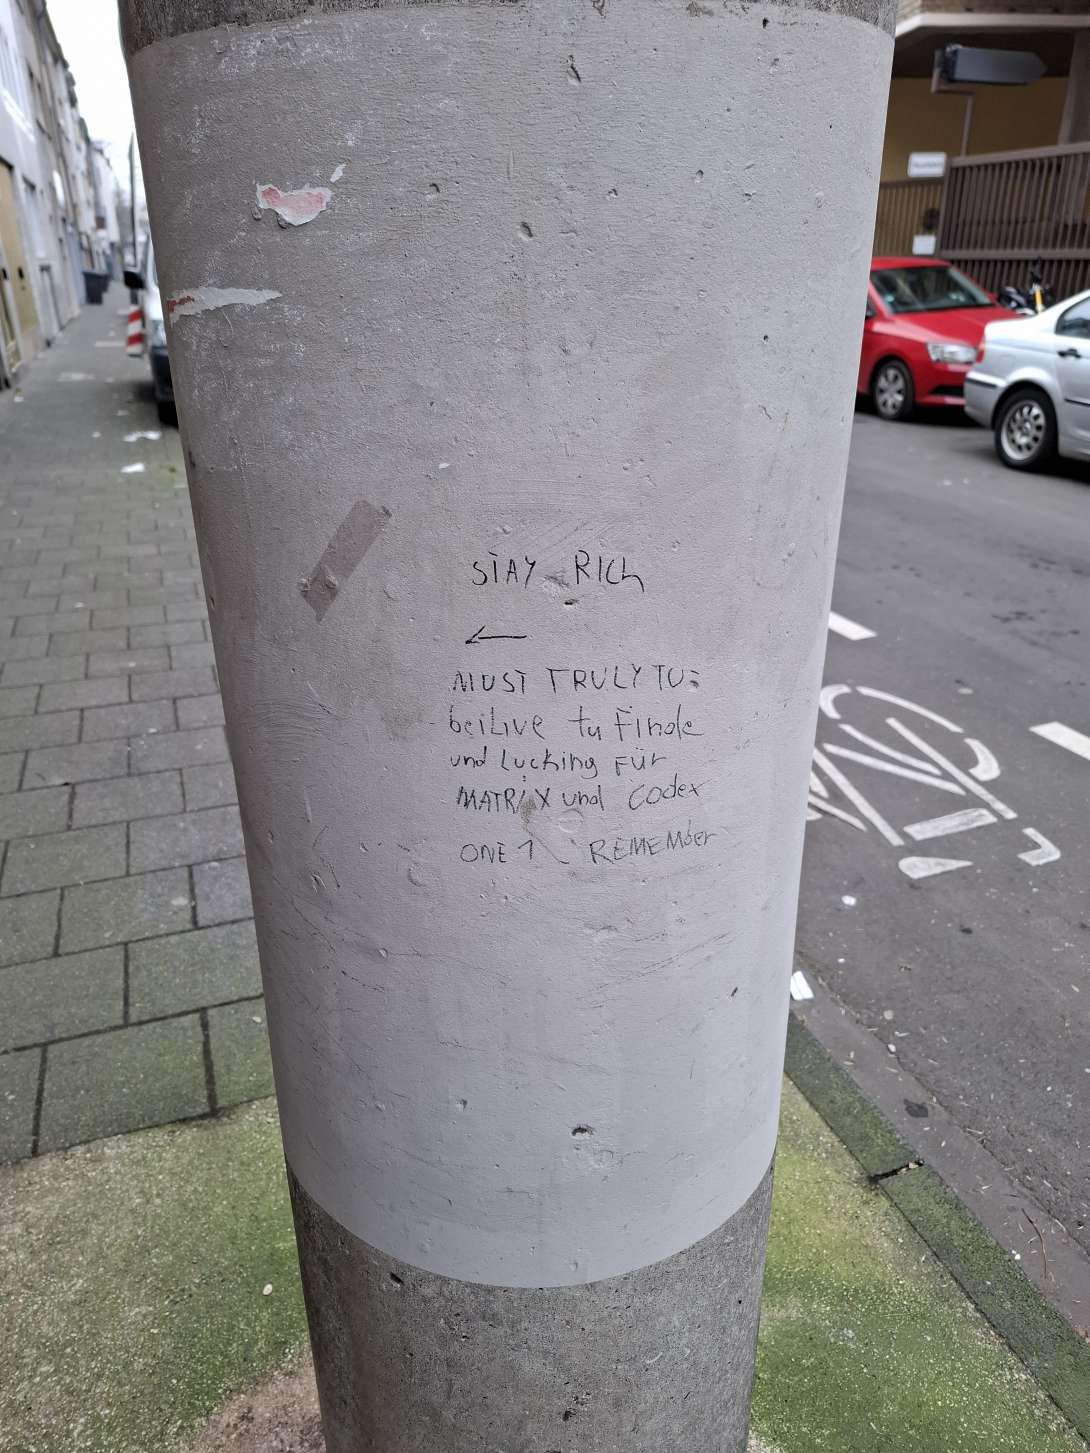 STAY RICh
←
MUST TRULY TO:
beiLive tu Finde
und Lucking FÜr
MATRiX und Codex
ONE 1 REMEMber